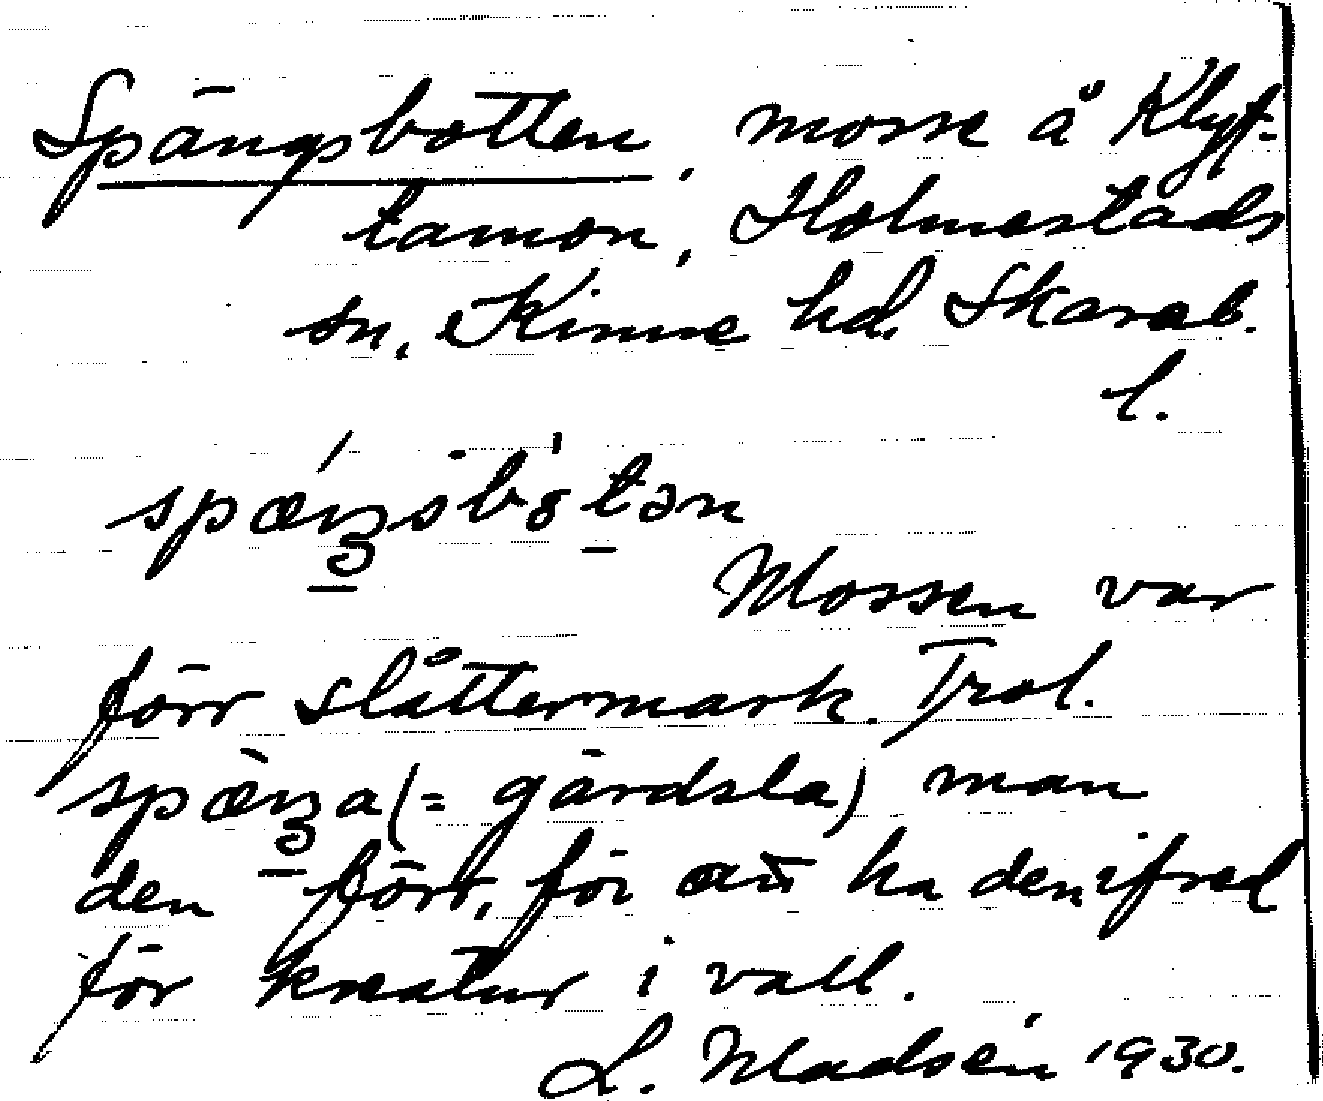 Spängsbotten, mosse å Klyf-
tamon, Holmestads
sn, Kinne hd. Skarab.
l.
Mossen var
förr slåttermark. Trol.
(= gärdsla) man
den förr, för att ha den ifred
för kreatur i vall.
L. Madsén 1930.